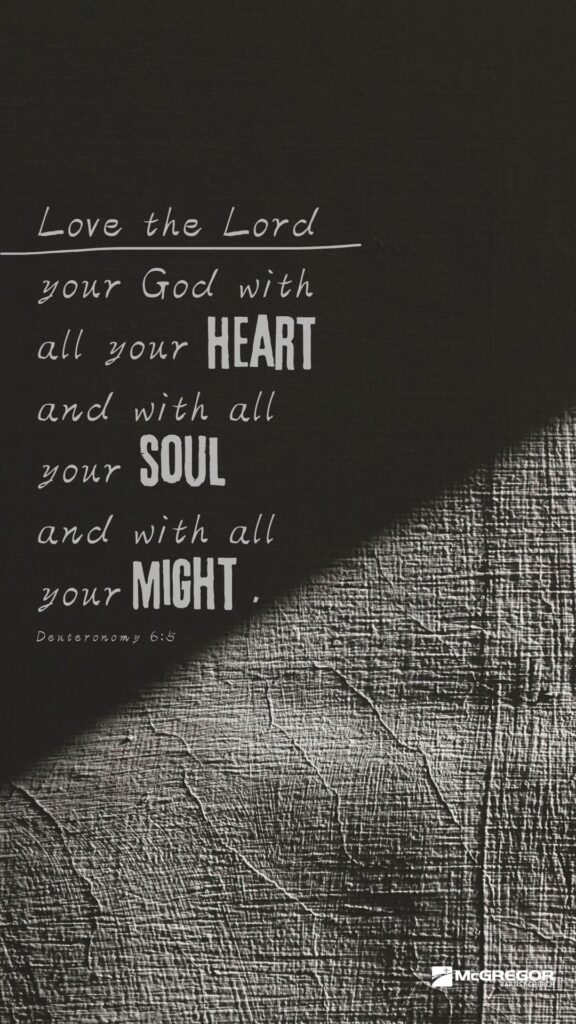 Love the Lord
your God with
all your HEART
and with all
your SOUL
and with all
your MIGHT.
Deuteronomy 6:5
McGREGOR
BAPTIST CHURCH